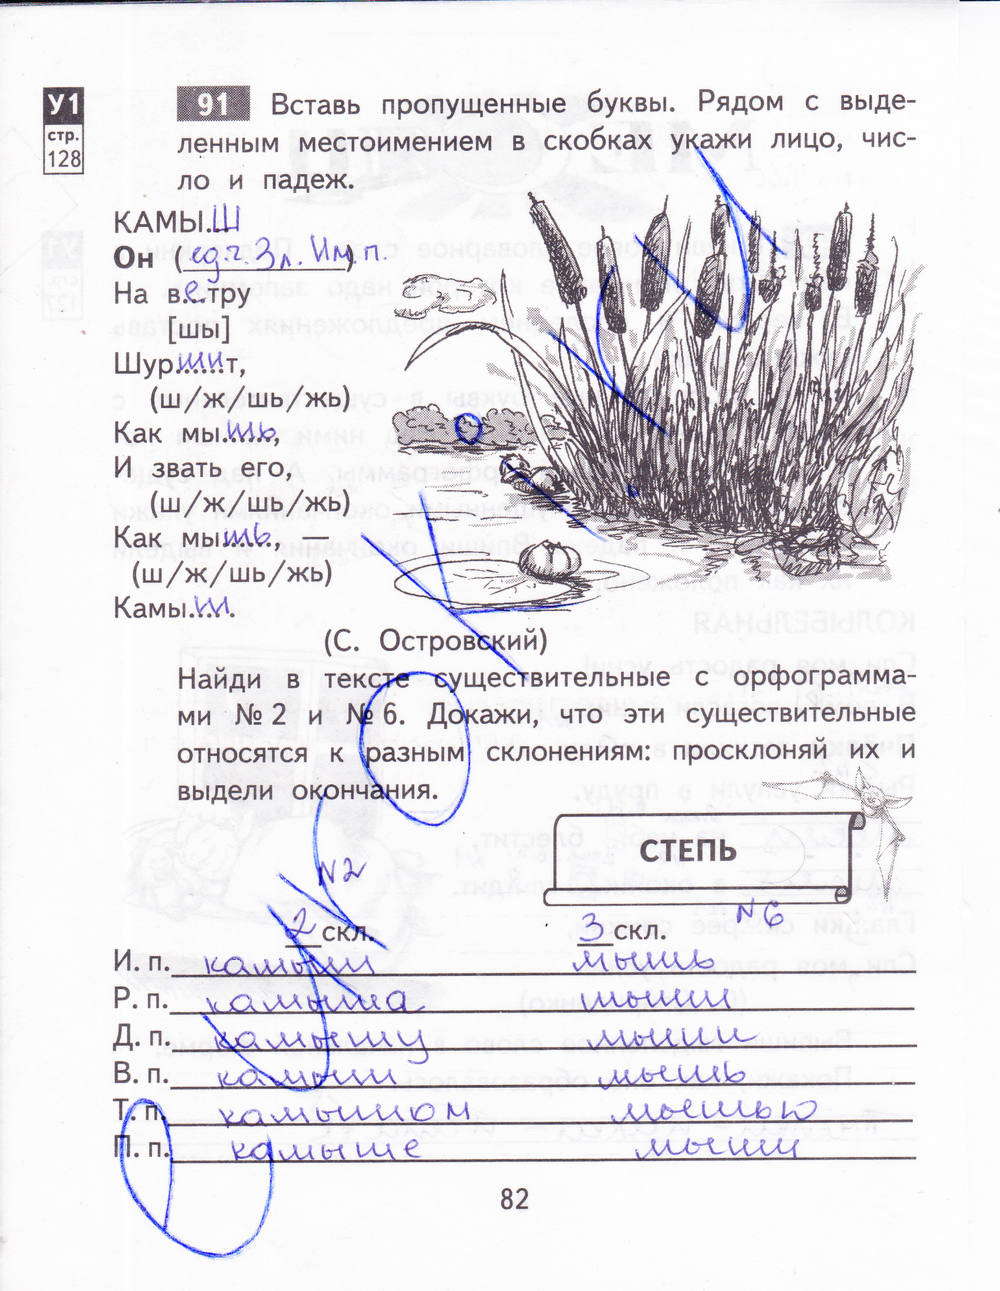 У1
стр.
128
91 Вставь пропущенные буквы. Рядом с выде-
ленным местоимением в скобках укажи лицо, чис-
ло и падеж.
КАМЫ.Ш
Он (ед.ч. 3л. Им.п.)
На в.е.тру
[шы]
Шур..ши..т,
(ш/ж/шь/жь)
Как мы..шь..,
И звать его,
(ш/ж/шь/жь)
Как мы..шь..,
(ш/ж/шь/жь)
Камы..ш..
(С. Островский)
Найди в тексте существительные с орфограмма-
ми № 2 и № 6. Докажи, что эти существительные
относятся к разным склонениям: просклоняй их и
выдели окончания.
СТЕПЬ
N2 N6
2 скл. 3 скл.
И. п. камыш мышь
Р. п. камыша мыши
Д. п. камышу мыши
В. п. камыш мышь
Т. п. камышом мышью
П. п. камыше мыши
82